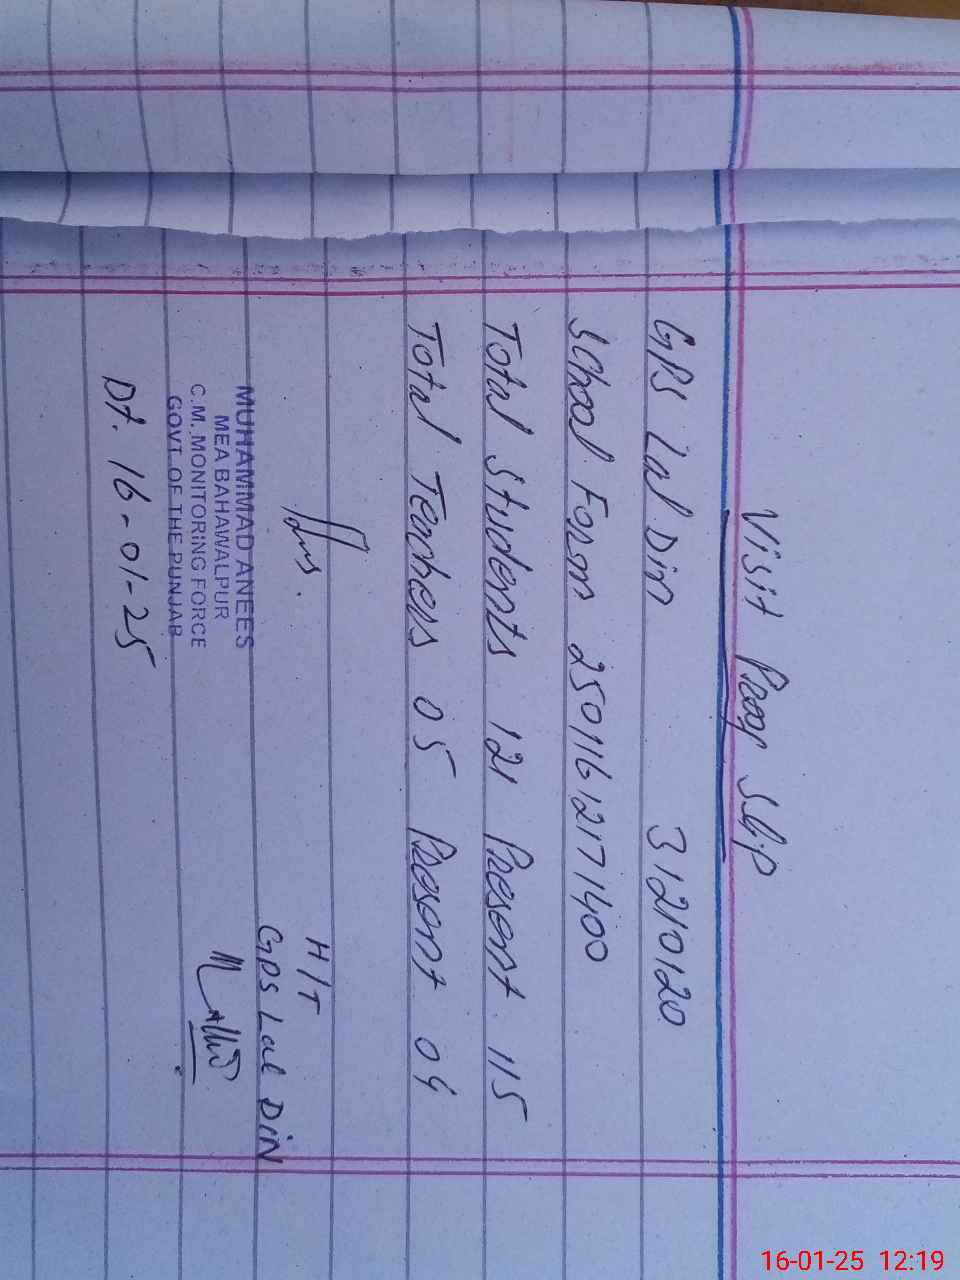 Visit Proof Slip
GPS Lal Din 31210120
School Form 250116121771400
Total Students 121 Present 115
Total Teachers 05 Present 04
H/T
GPS Lal DiN
MUHAMMAD ANEES
MEA BAHAWALPUR
C.M. MONITORING FORCE
GOVT OF THE PUNJAB
Dt. 16-01-25
16-01-25 12:19